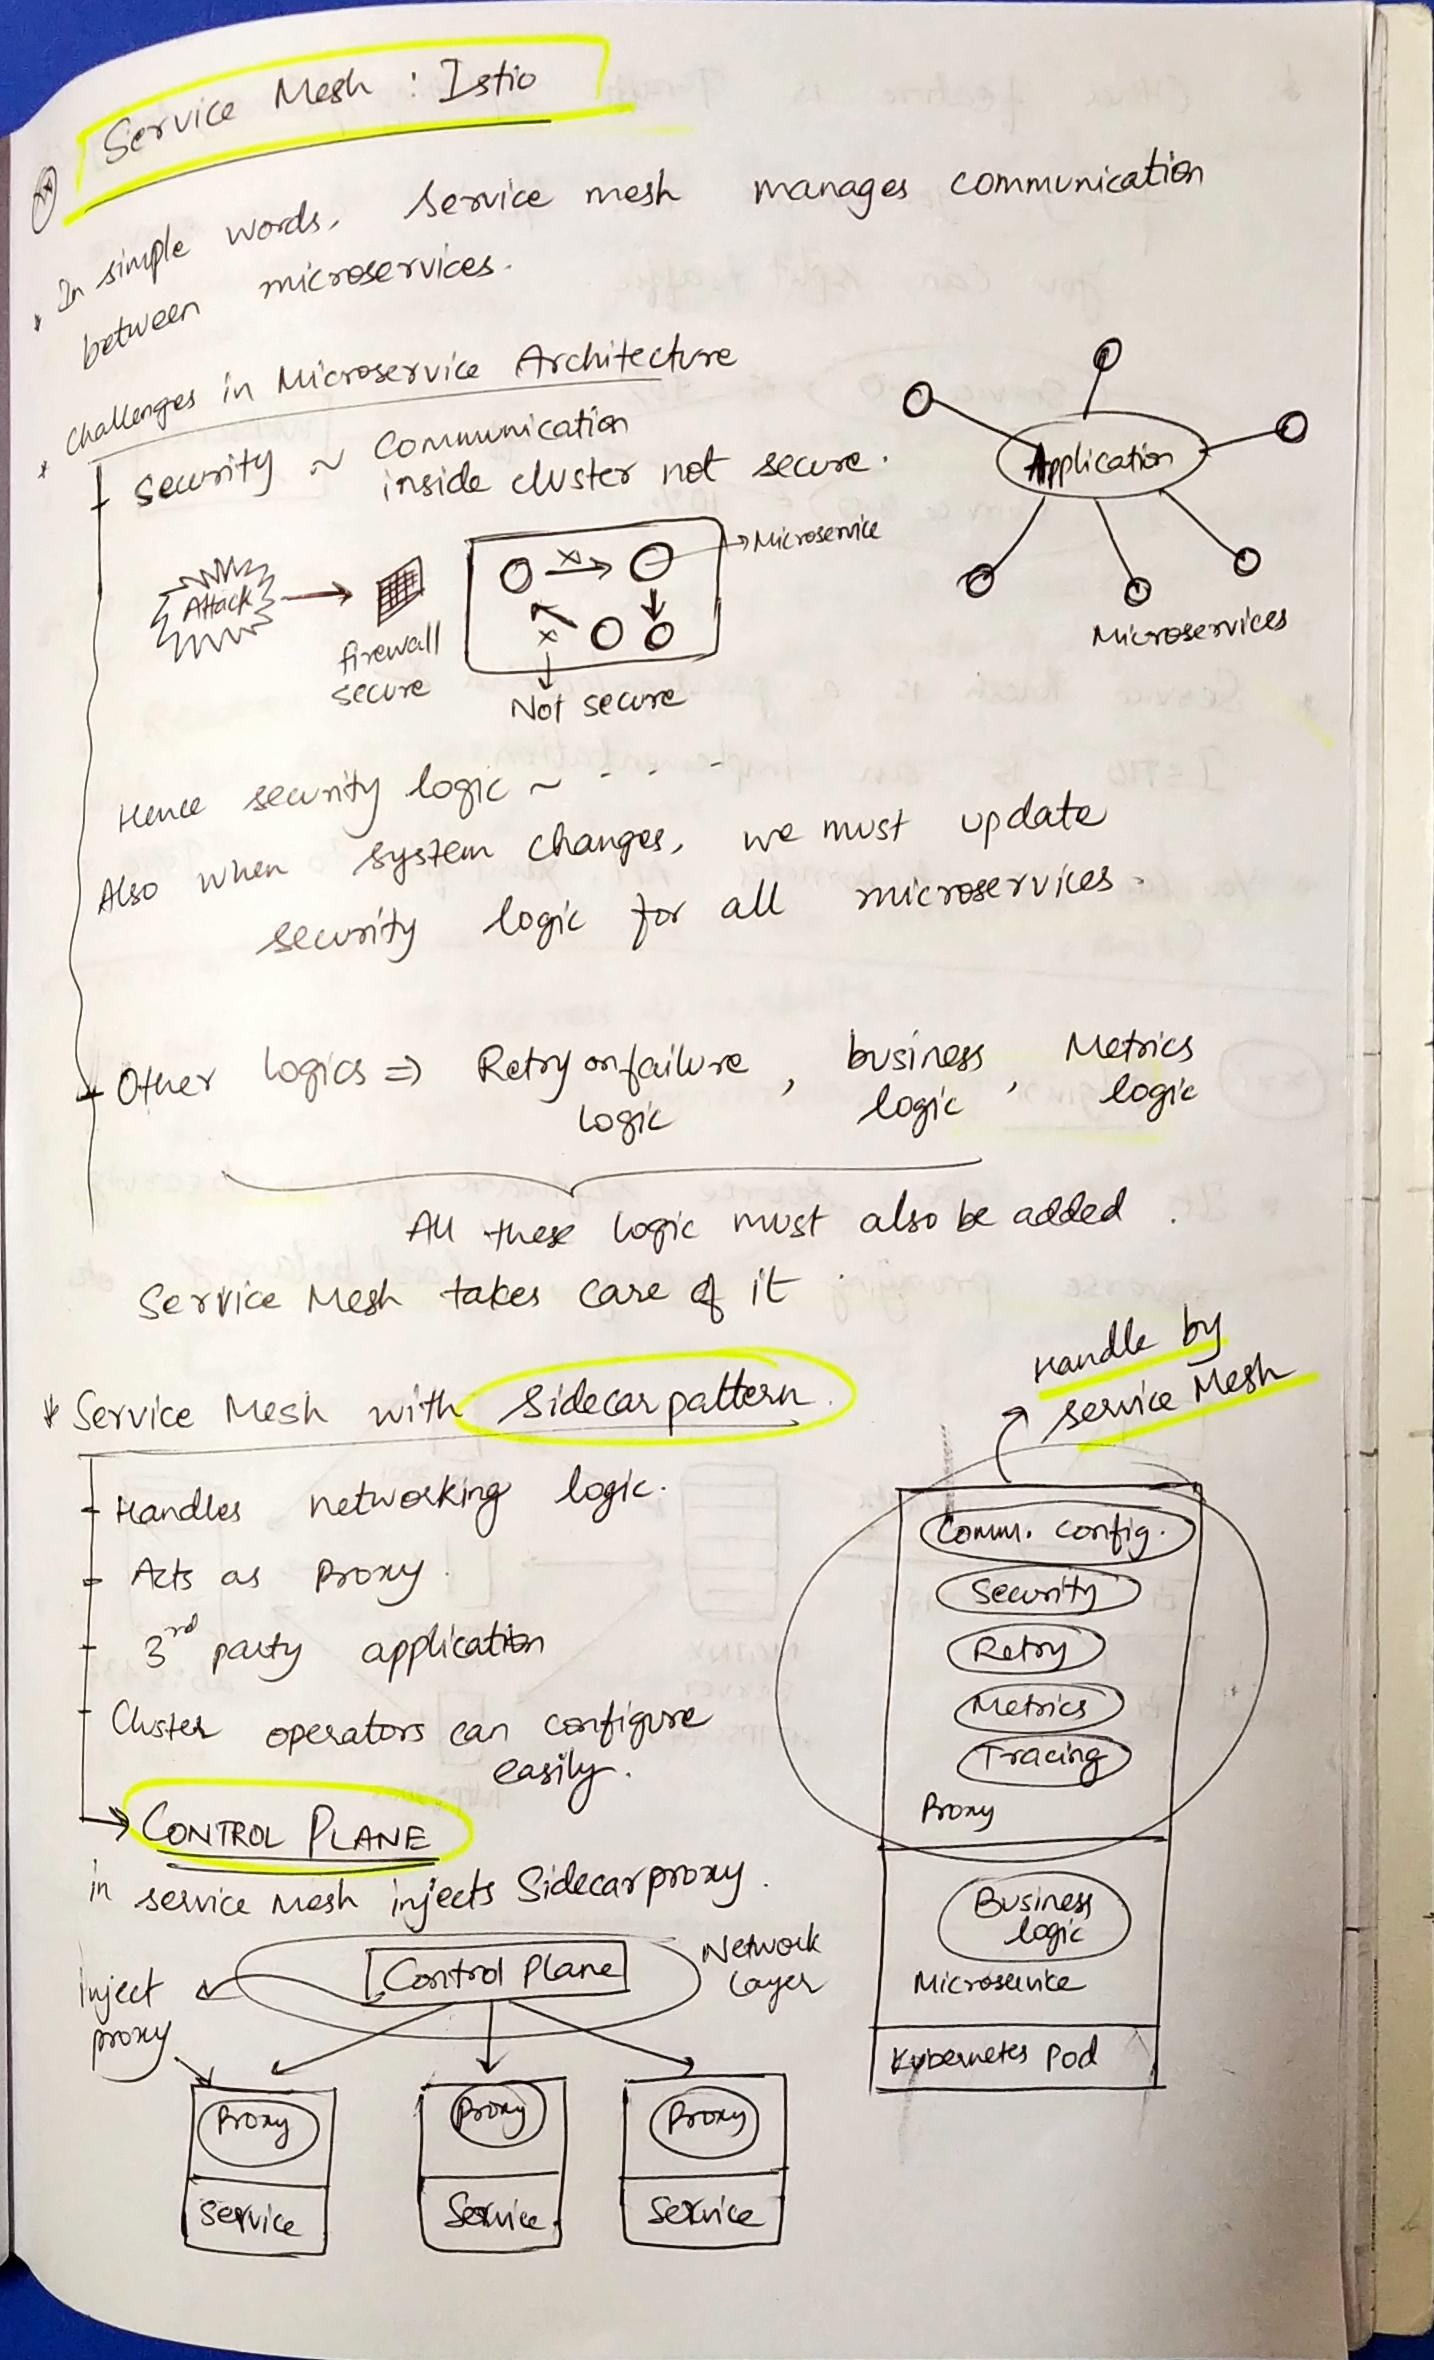 Service Mesh : Istio
* In simple words, service mesh manages communication
between microservices.
* Challenges in Microservice Architecture
Security ~ Communication
inside cluster not secure.
Application
Microservices
Attack
firewall
secure
Microservice
Not secure
Hence security logic ~ - - - -
Also when system changes, we must update
security logic for all microservices.
Other logics => Retry on failure , business , Metrics
logic logic logic
All these logic must also be added.
Service Mesh takes care of it.
* Service Mesh with Sidecar pattern.
Handles networking logic.
Acts as Proxy.
3rd party application
Cluster operators can configure
easily.
→ CONTROL PLANE
in service mesh injects Sidecar proxy.
Handle by
service Mesh
Comm. config.
Security
Retry
Metrics
Tracing
Proxy
Business
logic
Microservice
Kubernetes Pod
Control Plane
Network
Layer
Inject
proxy
Proxy
Service
Proxy
Service
Proxy
Service